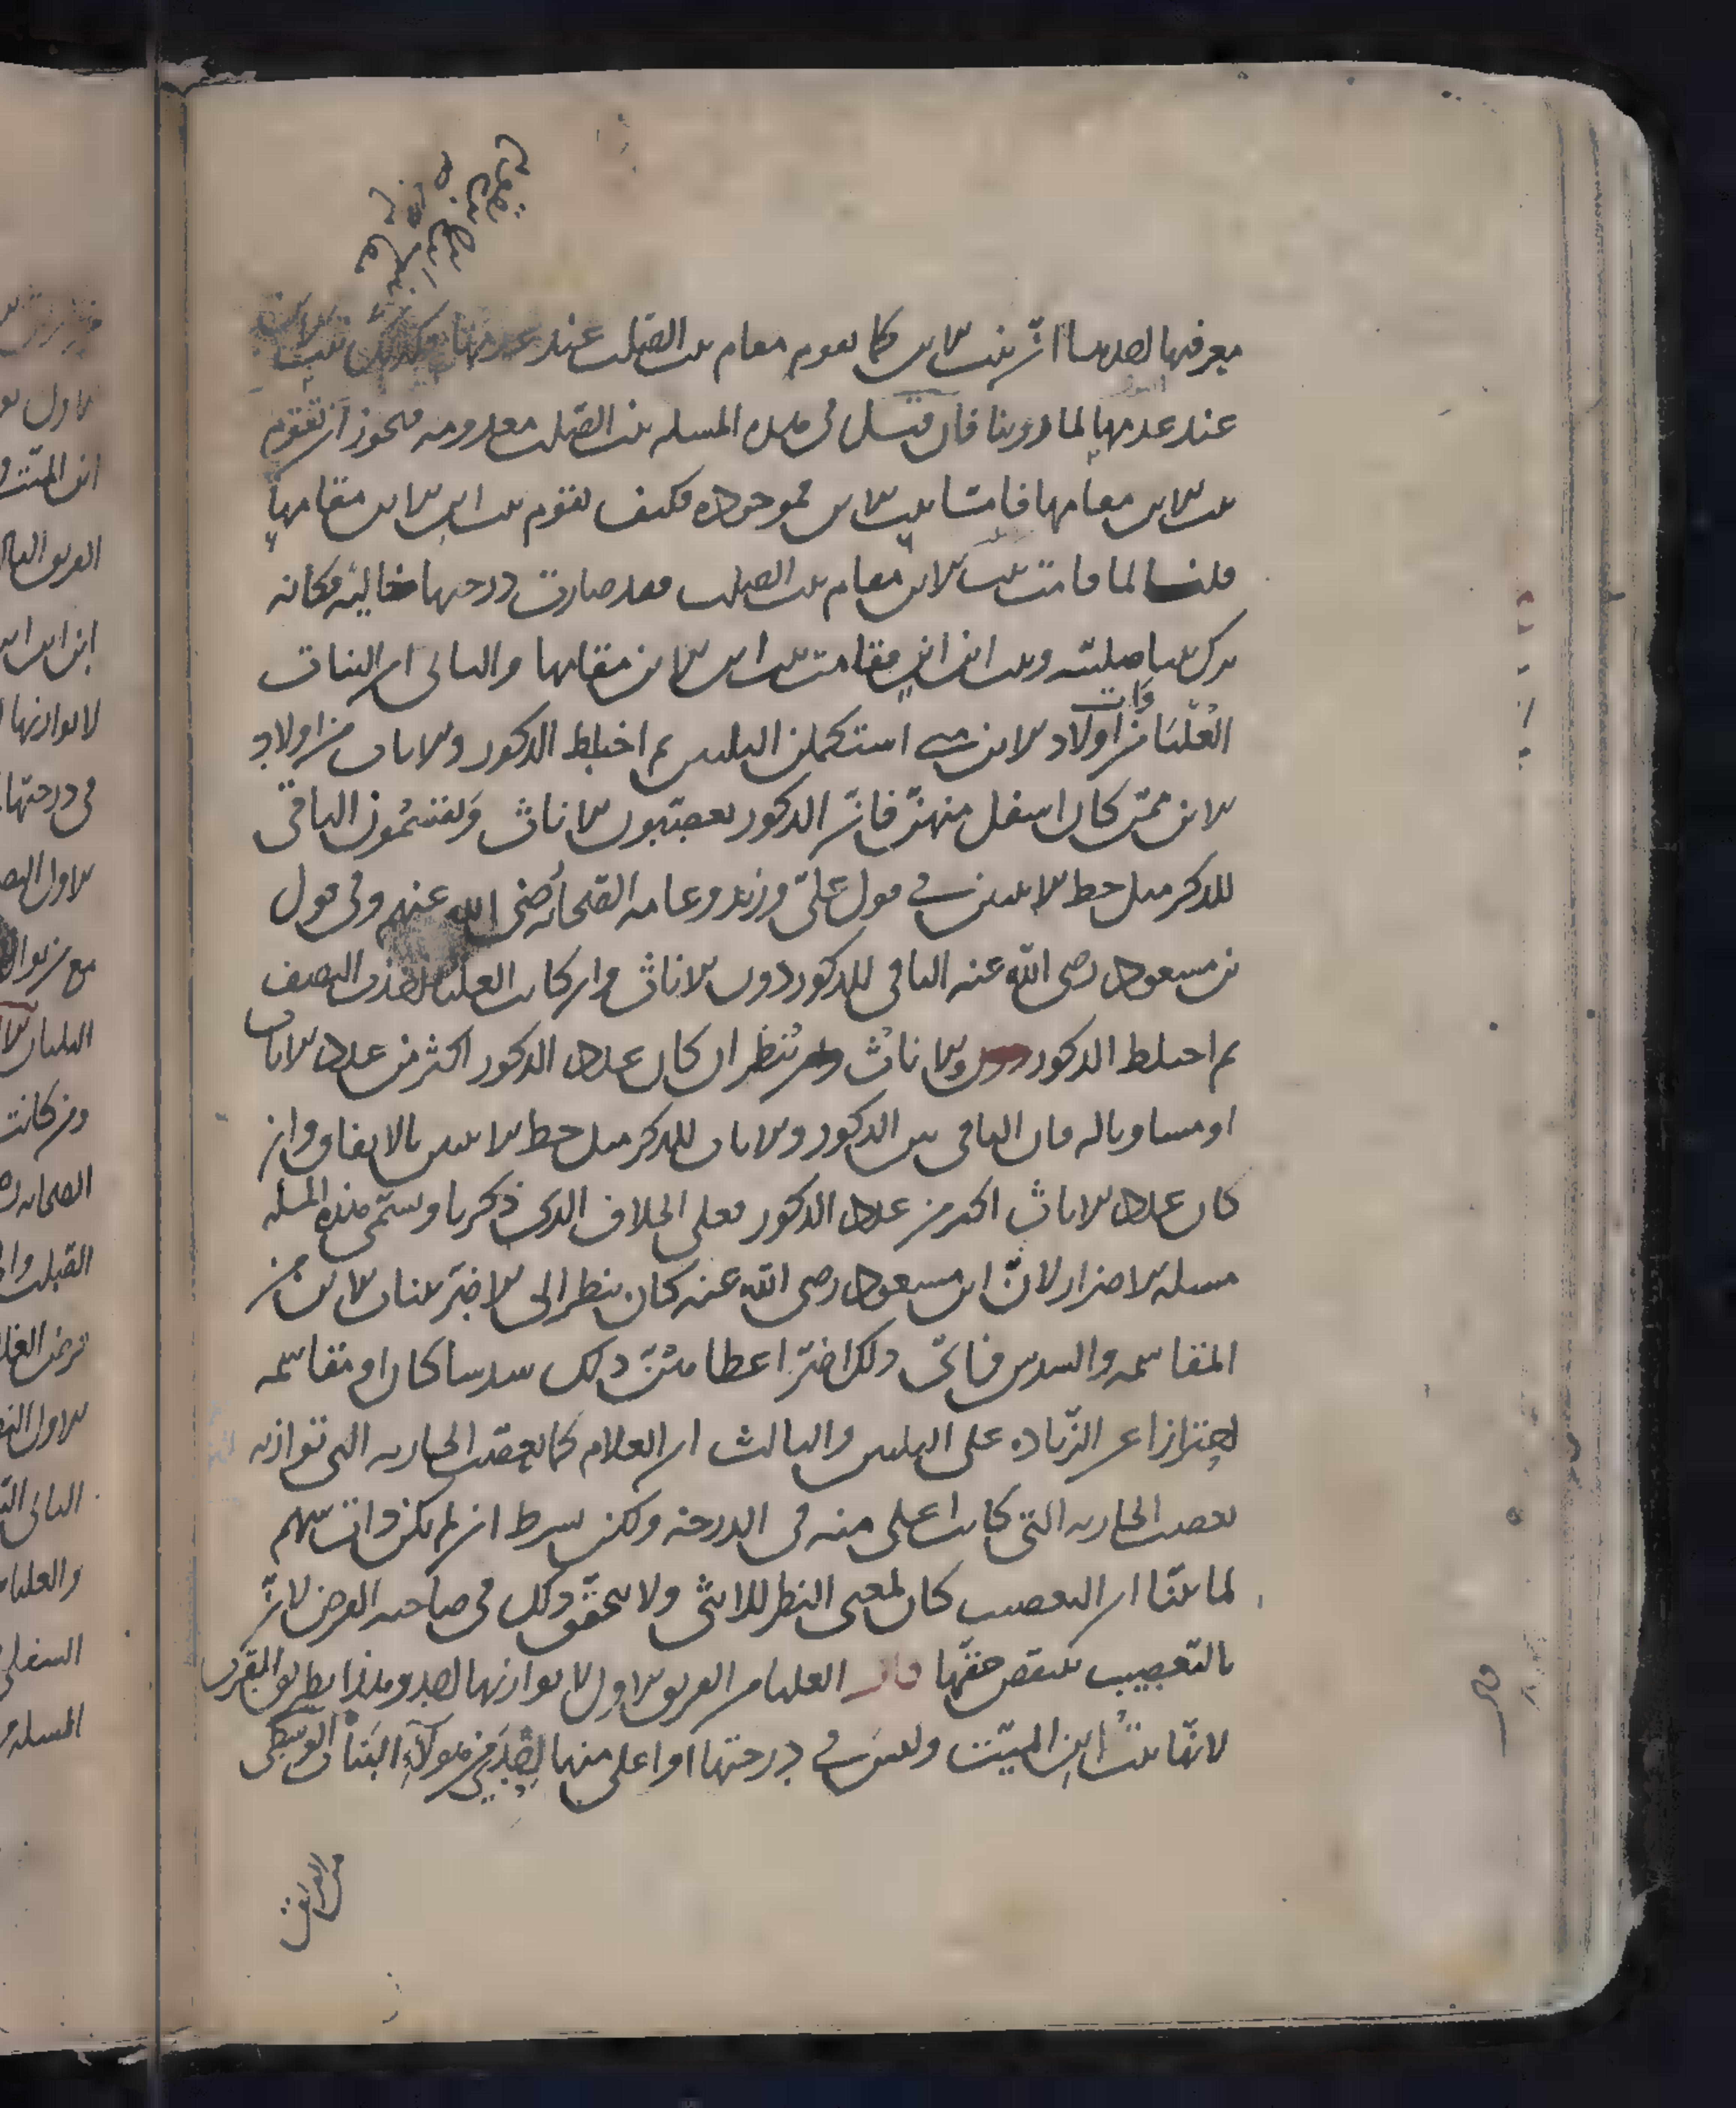 معرفتها احدىها ان بنت الابن كما تقوم مقام بنت الصلب عند عدمها فكذلك بنت
عند عدمها لما روينا فان قيل في هذه المسله بنت الصلب معدومه فيجوز ان تقوم
بنت الابن مقامها فامّا بنت الابن فموجوده فكيف تقوم بنت ابن الابن مقامها
قلنا لما قامت بنت الابن مقام بنت الصلب فقد صارت درجتها خالية فكانه
ترك بنتا صلبيّه وبنت ابن ابن فقامت بنت ابن الابن مقامها والثاني ان البنات
العُليَا من اولاد الابن متى استكملن الثلثين ثم اختلط الذكور والاناث من اولاد
الابن ممّن كان اسفل منهنّ فانّ الذكور يعصّبون الاناث ويقتسمُون الباقي
للذكر مثل حظ الانثيين في قول عليّ وزيد وعامه الصّحابه رضي الله عنهم وفي قول
بن مسعود رضى اللّه عنه الباقي للذكور دون الاناث وان كانت العليا اخذت النصف
ثم اختلط الذكور والاناث ينظر ان كان عدد الذكور اكثر من عدد الاناث
او مساويا له فان الباقي بين الذكور والاناث للذكر مثل حظ الانثيين بالاتفاق وان
كان عدد الاناث اكثر من عدد الذكور فعلى الخلاف الذي ذكرنا وتسمّى هذه المسله
مسله الاضرار لانّ ابن مسعود رضى اللّه عنه كان ينظر الى الاضرّ ببنات الابن من
المقاسمه والسدس فايّ ذلك اضرّ اعطاهنّ ذلك سدسا كان او مقاسمه
احترازا عن الزّياده على الثلثين والثالث ان الغلام كما يعصّب الجاريه التى توازيه
يعصب الجاريه التى كانت اعلى منه في الدرجه ولكن بشرط ان لم تكن ذات سهم
لما بيّنّا ان التعصيب كان لمعنى النظر للانثى ولا يتحقّق ذلك في صاحبه الفرض لانّ
بالتّعصيب ينتقص حقّها قال العليا من الفريق الاول لا يوازيها احد وهذا بطريق التقريب
لانّها بنتُ ابن الميّت وليس في درجتها او اعلى منها احدٌ من هولآء البنات الوسطى